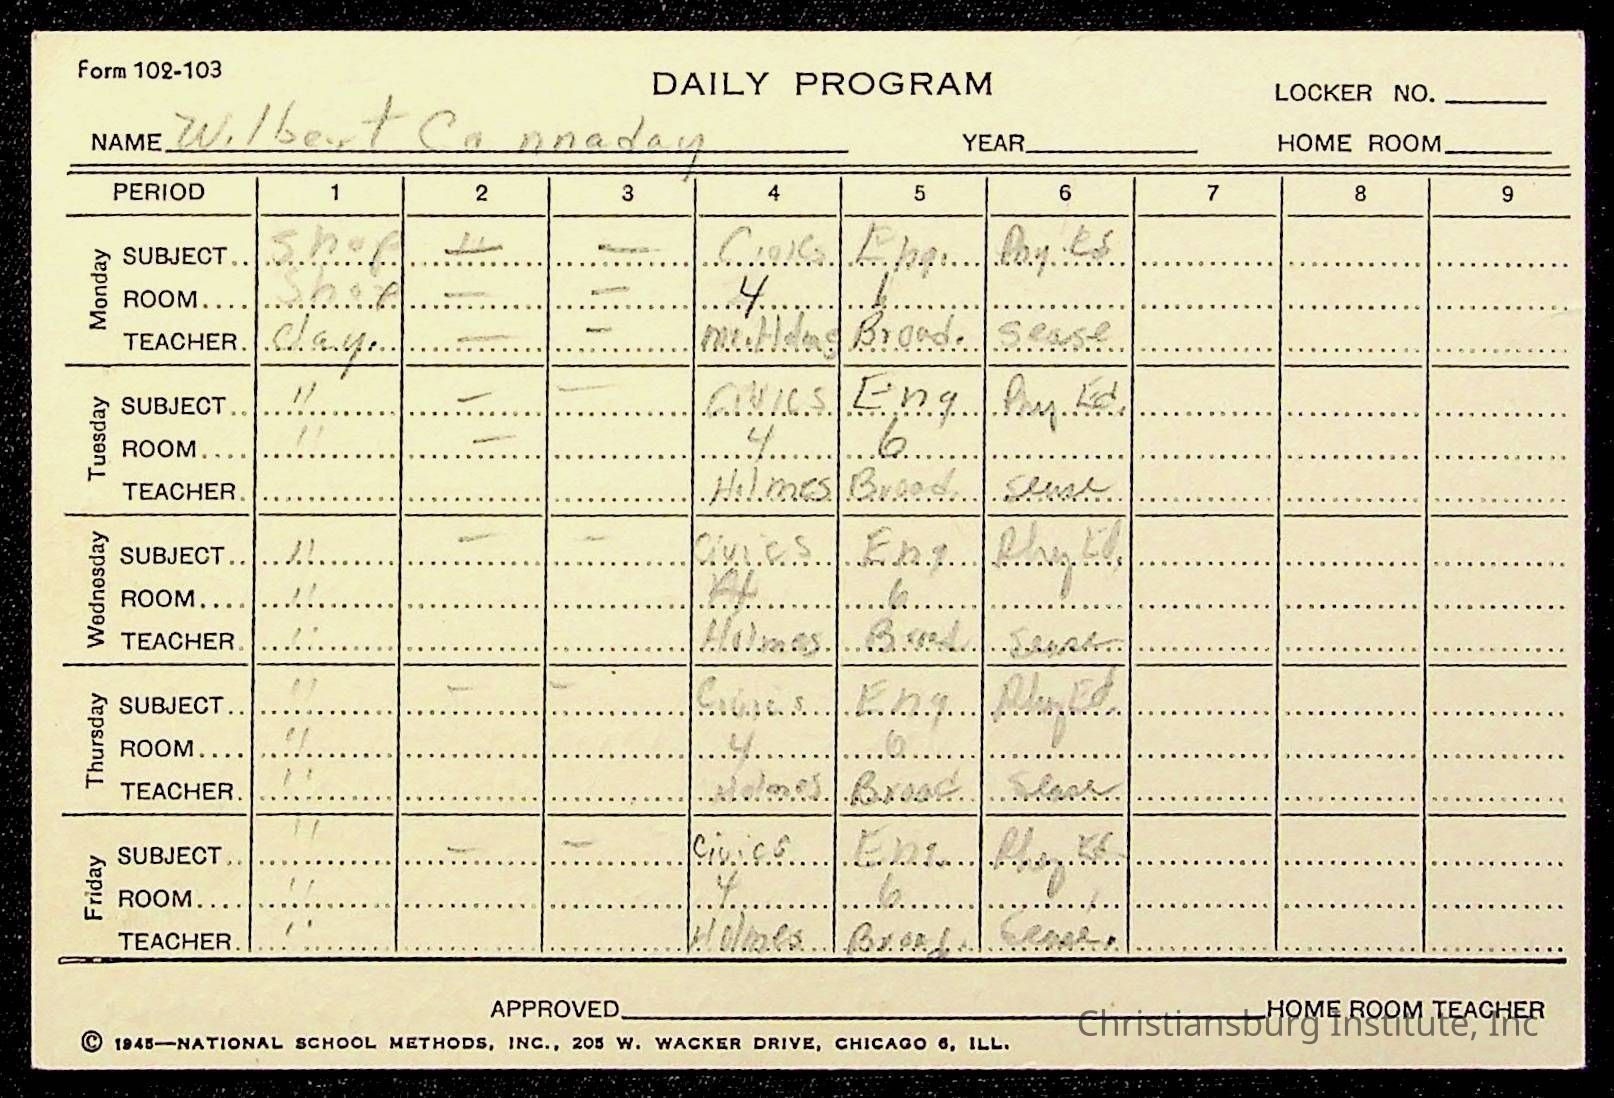 Form 102-103
DAILY PROGRAM
LOCKER NO.
NAME Wilbert Cannaday YEAR HOME ROOM
PERIOD 1 2 3 4 5 6 7 8 9
Monday
SUBJECT.. Shop " — Civics Eng. Phy Ed
ROOM.... Shop — — 4 6
TEACHER. Clay. — — Mr. Holmes Broad. Sease
Tuesday
SUBJECT.. " — — Civics Eng Phy Ed.
ROOM.... " — 4 6
TEACHER. Holmes Broad. Sease
Wednesday
SUBJECT.. " — — Civics Eng Phy Ed.
ROOM.... " 4 6
TEACHER. " Holmes Broad Sease
Thursday
SUBJECT.. " — — Civics Eng Phy Ed.
ROOM.... " 4 6
TEACHER. " Holmes Broad Sease
Friday
SUBJECT.. " — — Civics Eng. Phy Ed
ROOM.... " 4 6
TEACHER. " Holmes Broad. Sease.
APPROVED HOME ROOM TEACHER
© 1945—NATIONAL SCHOOL METHODS, INC., 205 W. WACKER DRIVE, CHICAGO 6, ILL.
Christiansburg Institute, Inc